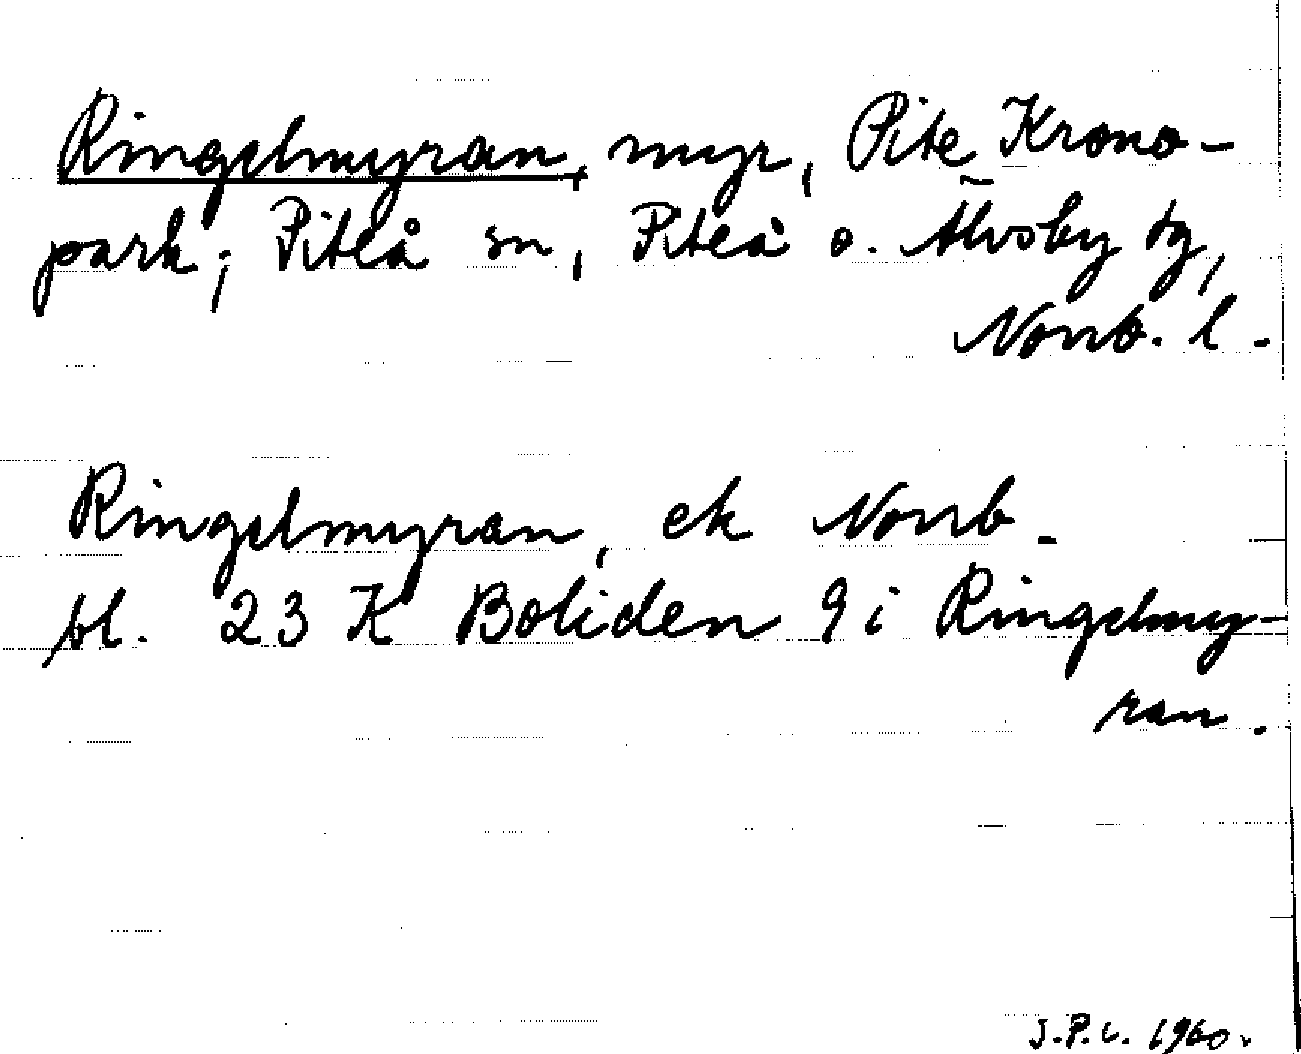 Ringelmyran, myr, Pite Krono-
park; Piteå sn, Piteå o. Älvsby tg,
Norrb. l.
Ringelmyran, ek Norrb.
bl. 23 K Boliden 9 i Ringelmy-
ran.
J.P.L. 1960.